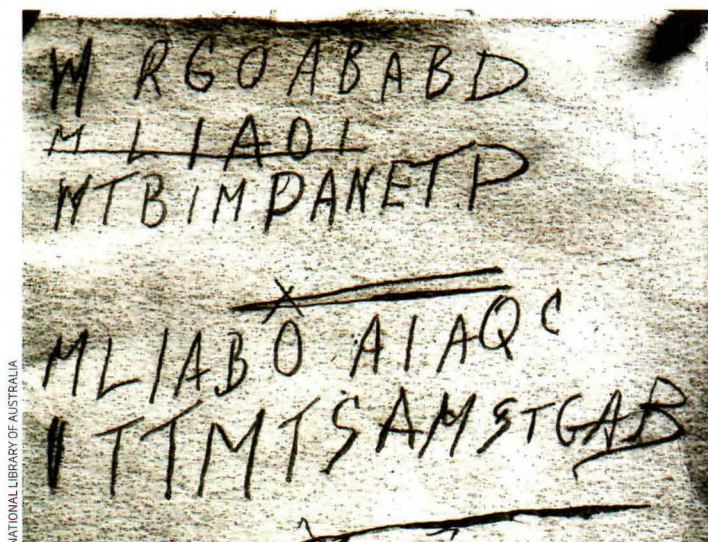 W RGOABABD
MLIAOI
WTBIMPANETP
MLIABO AIAQC
ITTMTSAMSTGAB
NATIONAL LIBRARY OF AUSTRALIA